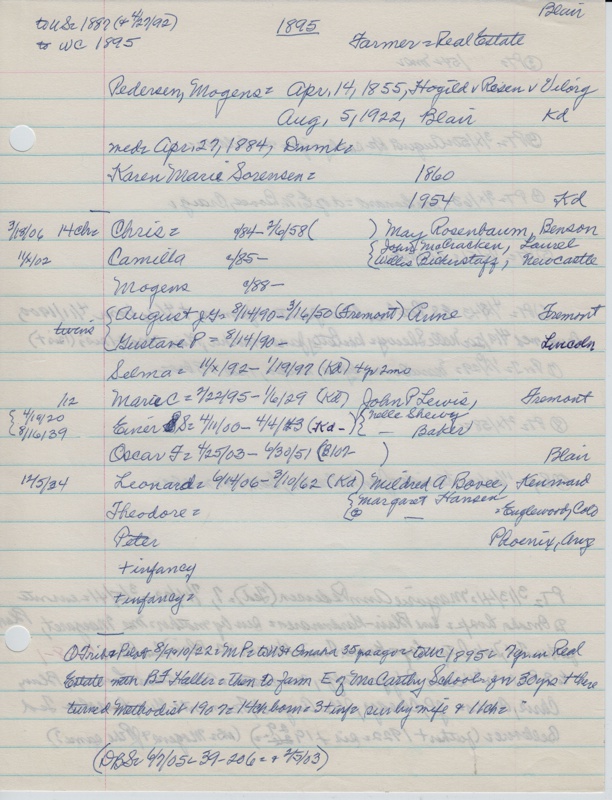 Blair
to US= 1887 (+ 4/27/92) 1895
to WC 1895 Farmer = Real Estate
Pedersen, Mogens = Apr. 14, 1855, Hogild v Rosen v Viborg
Aug, 5, 1922, Blair Kd
med= Apr. 27, 1884, Dnmk=
Karen Marie Sorensen = 1860
1954 Kd
3/19/06 14ch= Chris = 0/84- 2/6/58 ( ) May Rosenbaum, Benson
11/2/02 Camilla 0/85- { John McCracken, Laurel
{ Willis Bickerstaff, Newcastle
Mogens 0/88-
twins { August J. = 8/14/90 - 3/16/50 (Fremont) Anne Fremont
{ Gustave P = 8/14/90 - Lincoln
Selma = 11/x/92 - 1/19/97 (Kd) 4yr 2mo
1/12 Marie C = 2/22/95 - 1/6/29 (Kd) John P Lewis, Fremont
{ 4/19/20 Einer S = 4/11/00 - 4/4/73 (Kd - ) { Nelle Sheivy
{ 8/16/39 { — Baker
Oscar F = 4/25/03 - 6/30/51 (B102- ) Blair
12/5/34 Leonard = 6/14/06 - 3/10/62 (Kd) Mildred A Bovee, Kennard
Theodore = { Margaret Hansen
{ — = Englewood, Colo
Peter Phoenix, Ariz
+ infancy
+ infancy =
O Trib + Pilot 8/9+10/22 = MP = to US + Omaha 35 ys ago = to WC 1895 = 7 yr in Real
Estate with BF Haller = then to farm E of McCarthy School = for 30 yrs + there
turned Methodist 1907 = 14 ch born = 3 + inf = sur by wife + 11 ch =
(DBS = 6/7/05 = 39-206 = + 2/5/03)